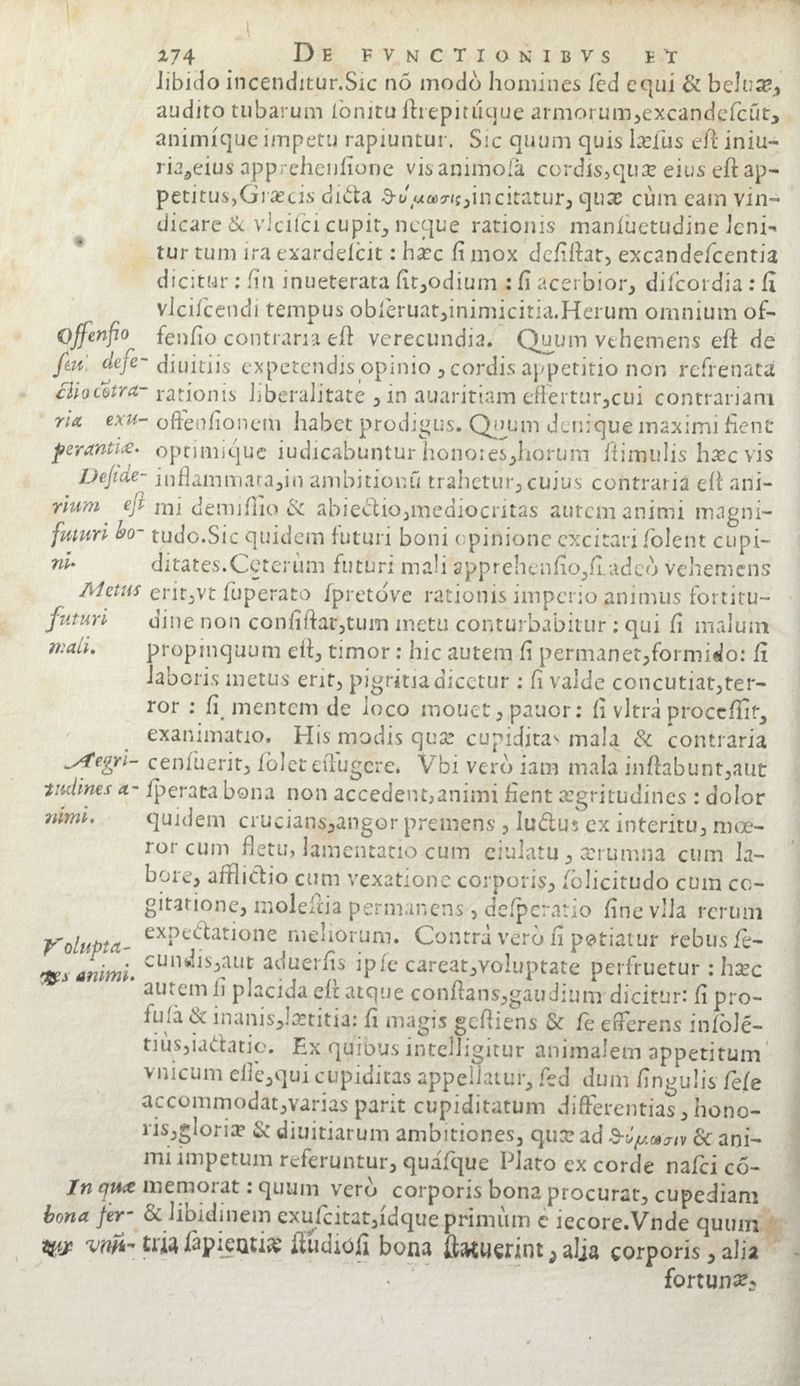 274 DE FVNCTIONIBVS ET
libido incenditur.Sic nõ modò homines ſed equi & beluæ,
audito tubarum ſonitu ſtrepitúque armorum,excandeſcũt,
animíque impetu rapiuntur. Sic quum quis læſus eſt iniu-
ria,eius apprehenſione vis animoſa cordis,quæ eius eſt ap-
petitus,Græcis dicta θύμωσις,incitatur, quæ cùm eam vin-
dicare & vlciſci cupit, neque rationis manſuetudine leni-
tur tum ira exardeſcit : hæc ſi mox deſiſtat, excandeſcentia
dicitur : ſin inueterata ſit,odium : ſi acerbior, diſcordia : ſi
vlciſcendi tempus obſeruat,inimicitia.Herum omnium of-
Offenſio
fenſio contraria eſt verecundia. Quum vehemens eſt de
ſeu defe-
diuitiis expetendis opinio , cordis appetitio non refrenata
ctio cõtra-
rationis liberalitate , in auaritiam effertur,cui contrariam
ria exu-
offenſionem habet prodigus. Quum denique maximi fient
perantiæ.
optimique iudicabuntur honores,horum ſtimulis hæc vis
Deſide-
inflammata,in ambitionũ trahetur, cuius contraria eſt ani-
rium eſt
mi demiſſio & abiectio,mediocritas autem animi magni-
futuri bo-
tudo.Sic quidem futuri boni opinione excitari ſolent cupi-
ni.
ditates.Ceterùm futuri mali apprehenſio,ſi adeò vehemens
Metus
erit,vt ſuperato ſpretóve rationis imperio animus fortitu-
futuri
dine non conſiſtat,tum metu conturbabitur : qui ſi malum
mali.
propinquum eſt, timor : hic autem ſi permanet,formido: ſi
laboris metus erit, pigritia dicetur : ſi valde concutiat,ter-
ror : ſi mentem de loco mouet , pauor: ſi vltrà proceſſit,
exanimatio. His modis quæ cupiditas mala & contraria
Aegri-
cenſuerit, ſolet effugere. Vbi verò iam mala inſtabunt,aut
tudines a-
ſperata bona non accedent,animi fient ægritudines : dolor
nimi.
quidem crucians,angor premens , luctus ex interitu, mœ-
ror cum fletu, lamentatio cum eiulatu , ærumna cum la-
bore, afflictio cum vexatione corporis, ſolicitudo cum co-
gitatione, moleſtia permanens , deſperatio ſine vlla rerum
Volupta-
expectatione meliorum. Contrà verò ſi potiatur rebus ſe-
tes animi.
cundis,aut aduerſis ipſe careat,voluptate perfruetur : hæc
autem ſi placida eſt atque conſtans,gaudium dicitur: ſi pro-
fuſa & inanis,lætitia: ſi magis geſtiens & ſe efferens inſolé-
tiùs,iactatio. Ex quibus intelligitur animalem appetitum
vnicum eſſe,qui cupiditas appellatur, ſed dum ſingulis ſeſe
accommodat,varias parit cupiditatum differentias , hono-
ris,gloriæ & diuitiarum ambitiones, quæ ad θύμωσιν & ani-
mi impetum referuntur, quáſque Plato ex corde naſci cõ-
In quæ
memorat : quum verò corporis bona procurat, cupediam
bona fer-
& libidinem exuſcitat,ídque primùm è iecore.Vnde quum
vnũ-
tria ſapientiæ ſtudioſi bona ſtatuerint , alia corporis , alia
fortunæ,